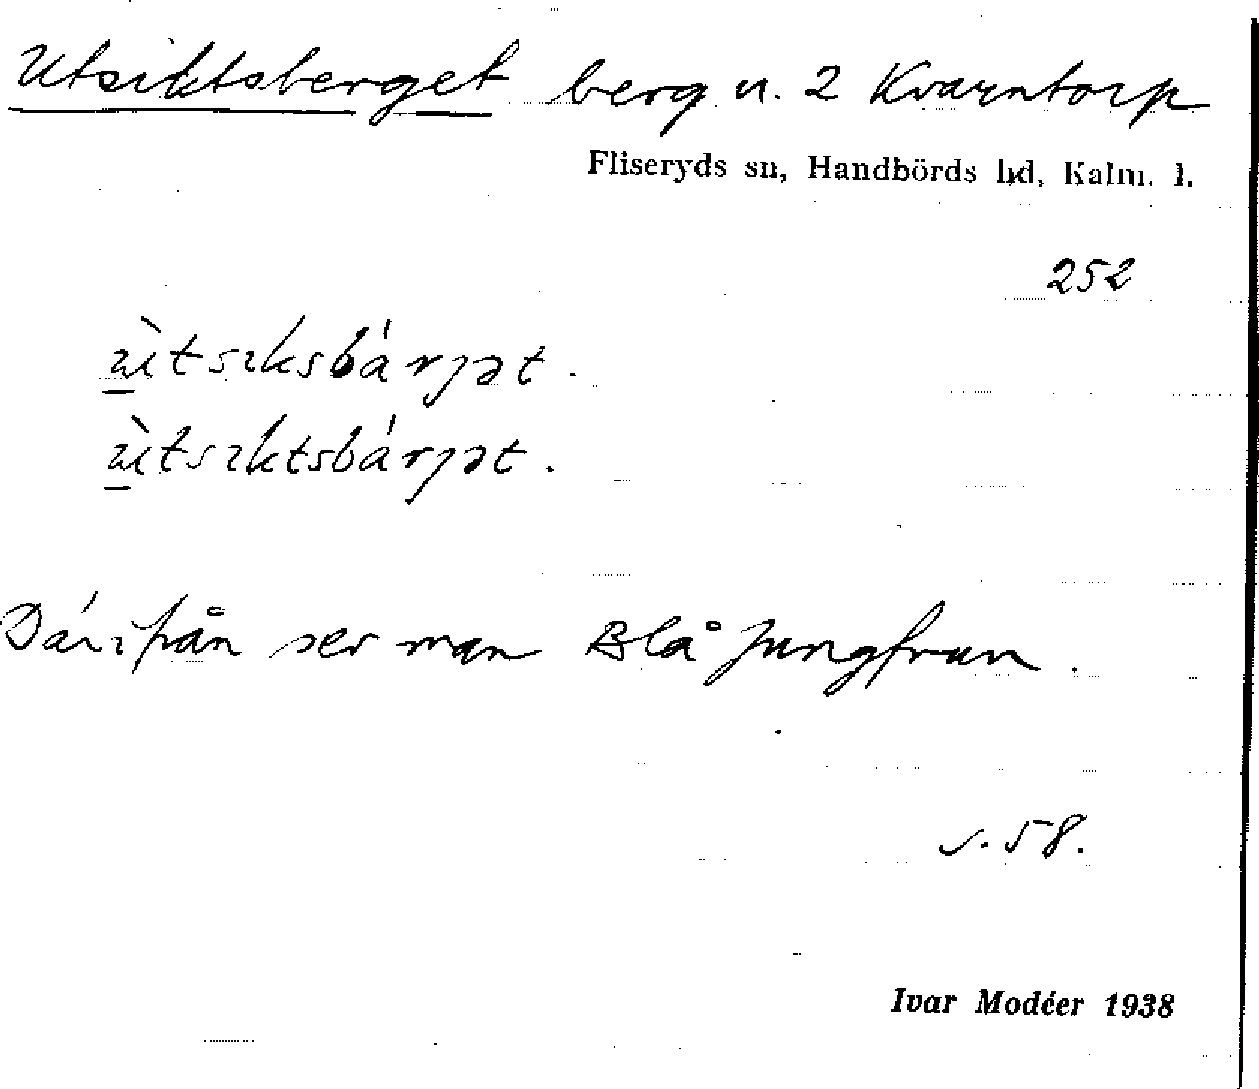 Utsiktsberget berg n. 2 Kvarntorp
Fliseryds sn, Handbörds hd, Kalm. l.
252
ùtsıksbárȷət.
ùtsıktsbárȷət.
Därifrån ser man Blå Jungfrun.
s. 58.
Ivar Modéer 1938